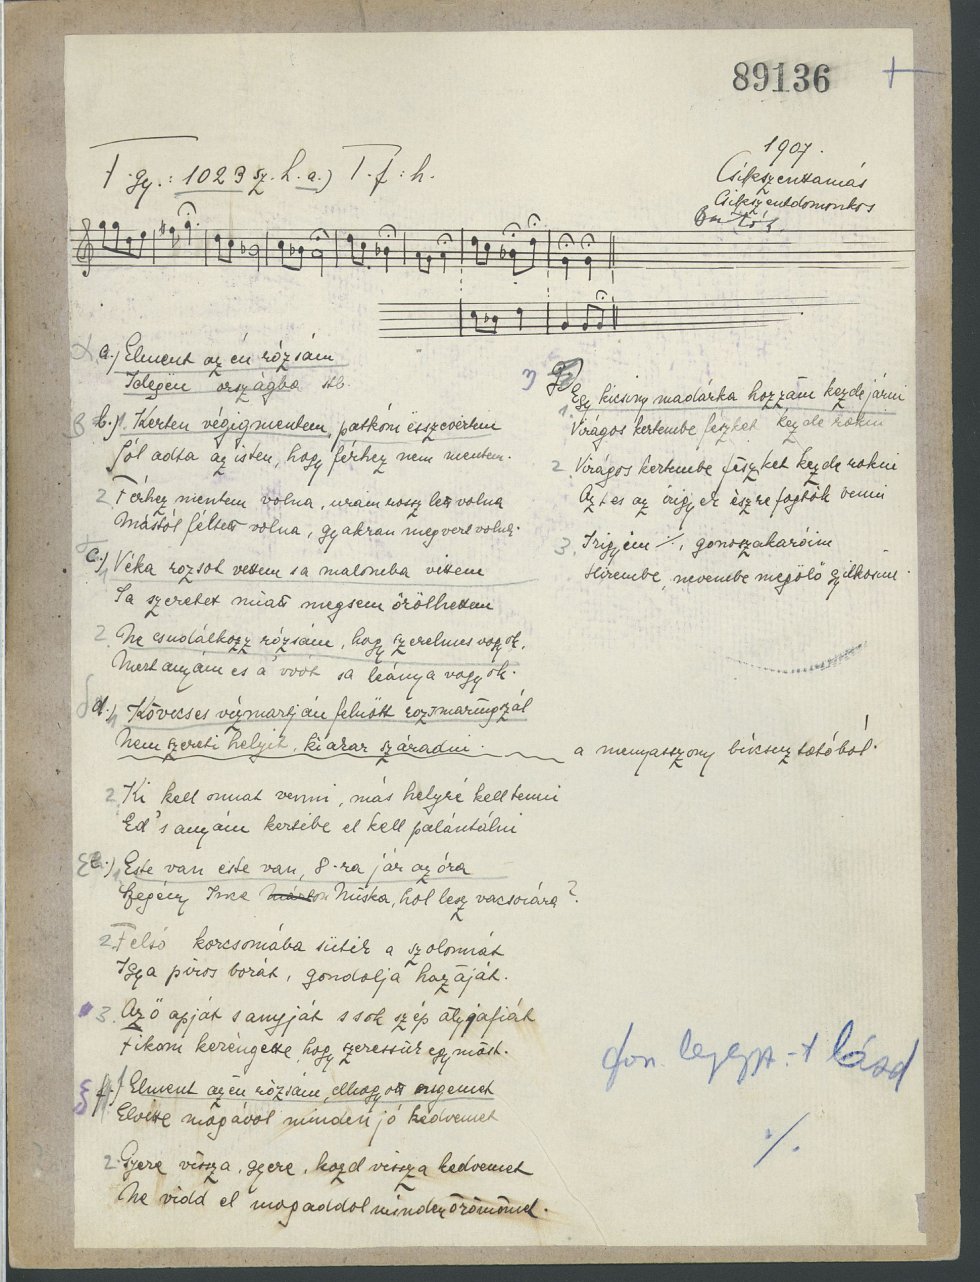 89136
F. gy.: 1023 sz. h. a.) T. f: h.
1907.
Csikszenttamás
Csikszentdomonkos
a.) Elment az én rózsám
Idegën országba stb.
b.) 1. Kerten végigmentem, patkóm összevertem
Jól adta az isten, hogy férhez nem mentem.
2 Férhez mentem volna, uram rossz lett volna
Mástól féltett volna, gyakran megvert volna.
c.) 1 Véka rozsot vettem sa malomba vittem
Sa szeretet miatt megsem őrölhettem
2. Ne csudálkozz rózsám, hogy szerelmes vagyok,
Mert anyám es a' vót sa leánya vagyok.
d.) 1 Kövecses víz martján felnőtt rozsmaringszál
Nem szereti helyit, ki akar száradni. a menyasszony búcsuztatóból.
2, Ki kell onnat venni, más helyré kell tenni
Ed's anyám kertibe el kell palántálni
e.) 1 Este van este van, 8-ra jár az óra
Szegény Imre Miska, hol lesz vacsorára?
2. Felső korcsomába sütik a szalonnát
Igya piros borát, gondolja hazáját.
3. Az ő apját s anyját s sok szép atyafiát
Titkom kerengette hogy szeressük egymást.
f.) Elment az én rózsám, elhagyott engemet
Elvitte magával minden jó kedvemet
2. Gyere vissza, gyere, hozd vissza kedvemet
Ne vidd el magaddal minden örömömet.
g)
1. Egy kicsiny madárka hozzám kezde járni
Virágos kertembe fészket kezde rakni
2 Virágos kertembe fészket kezde rakni
Azt es az irigyek észre fogták venni
3. Irigyeim ./., gonoszakaróim
Hírembe, nevembe megölő gyilkosim.
fon. lásd
./.